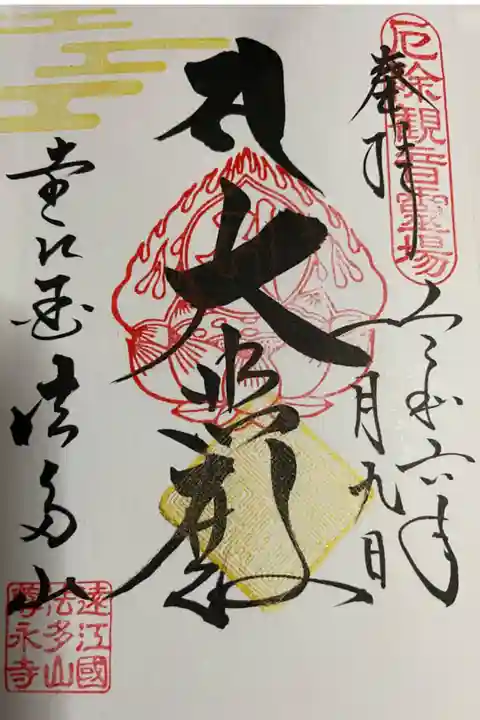 厄除観音霊場
奉拝
令和六年
月九日
大悲殿
遠江国 法多山
遠江國
法多山
尊永寺